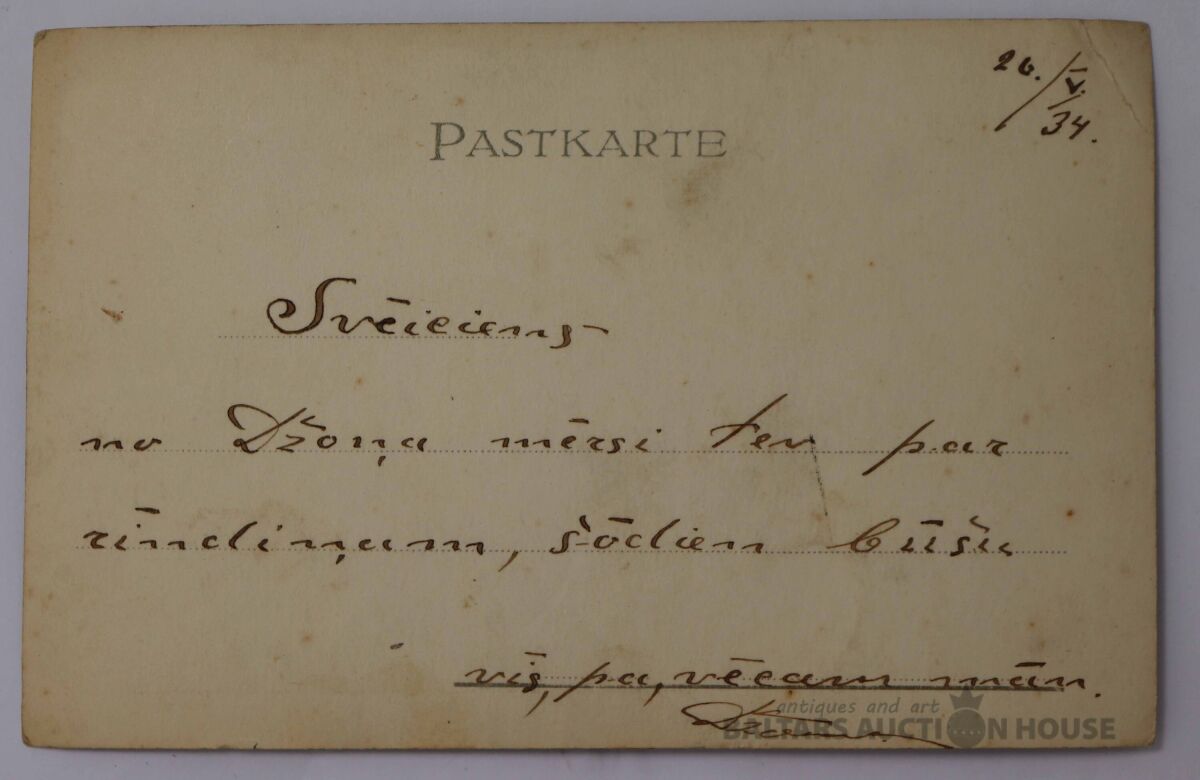 26./V.
34.
PASTKARTE
Svēiciens
no Džoņa mērsi tev par
rīndiņam, šōdien būšu
vis, pa, vēcam mān.
antiques and art
BALTARS AUCTION HOUSE